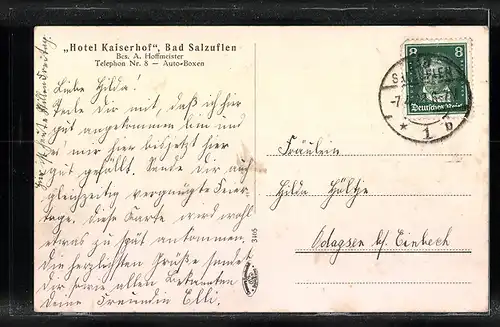 „Hotel Kaiserhof", Bad Salzuflen
Bes. A. Hoffmeister
Telephon Nr. 8 — Auto-Boxen
Liebe Hilda!
Teile Dir mit, daß ich hier
gut angekommen bin und
es mir hier bis jetzt hier
gut gefällt. Sende Dir auch
gleichzeitig vergnügte Feier-
tage. Diese Karte wird wohl
etwas zu spät ankommen.
Die herzlichsten Grüße sendet
Dir sowie allen Bekannten
Deine Freundin Elli.
3405
8 8
Deutsches Reich
SALZUFLEN
* 1 b
Fräulein
Hilda Höltje
Odagsen b/ Einbeck